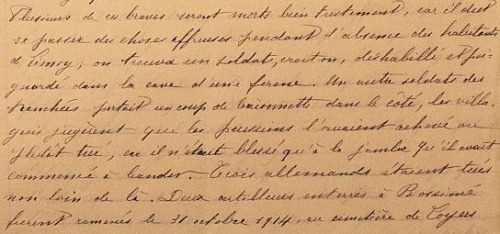 Plusieurs de ces braves seront morts bien tristement, car il dut
se passer des choses affreuses pendant l'absence des habitants
de ; on trouva un soldat, croit-on, déshabillé et poi-
gnardé dans la cave d'une ferme. Un autre soldats des
tranchées portait un coup de baionnette dans le côté, les villa-
geois jugèrent que les prussiens l'avaient achevé ou
plutôt tué, car il n'était blessé qu'à la jambe qu'il avait
commencé à bander. Trois allemands étaient tués
non loin de là. Deux artilleurs enterrés à Bossimé
furent ramenés le 31 octobre 1914, au cimetière de Loyers